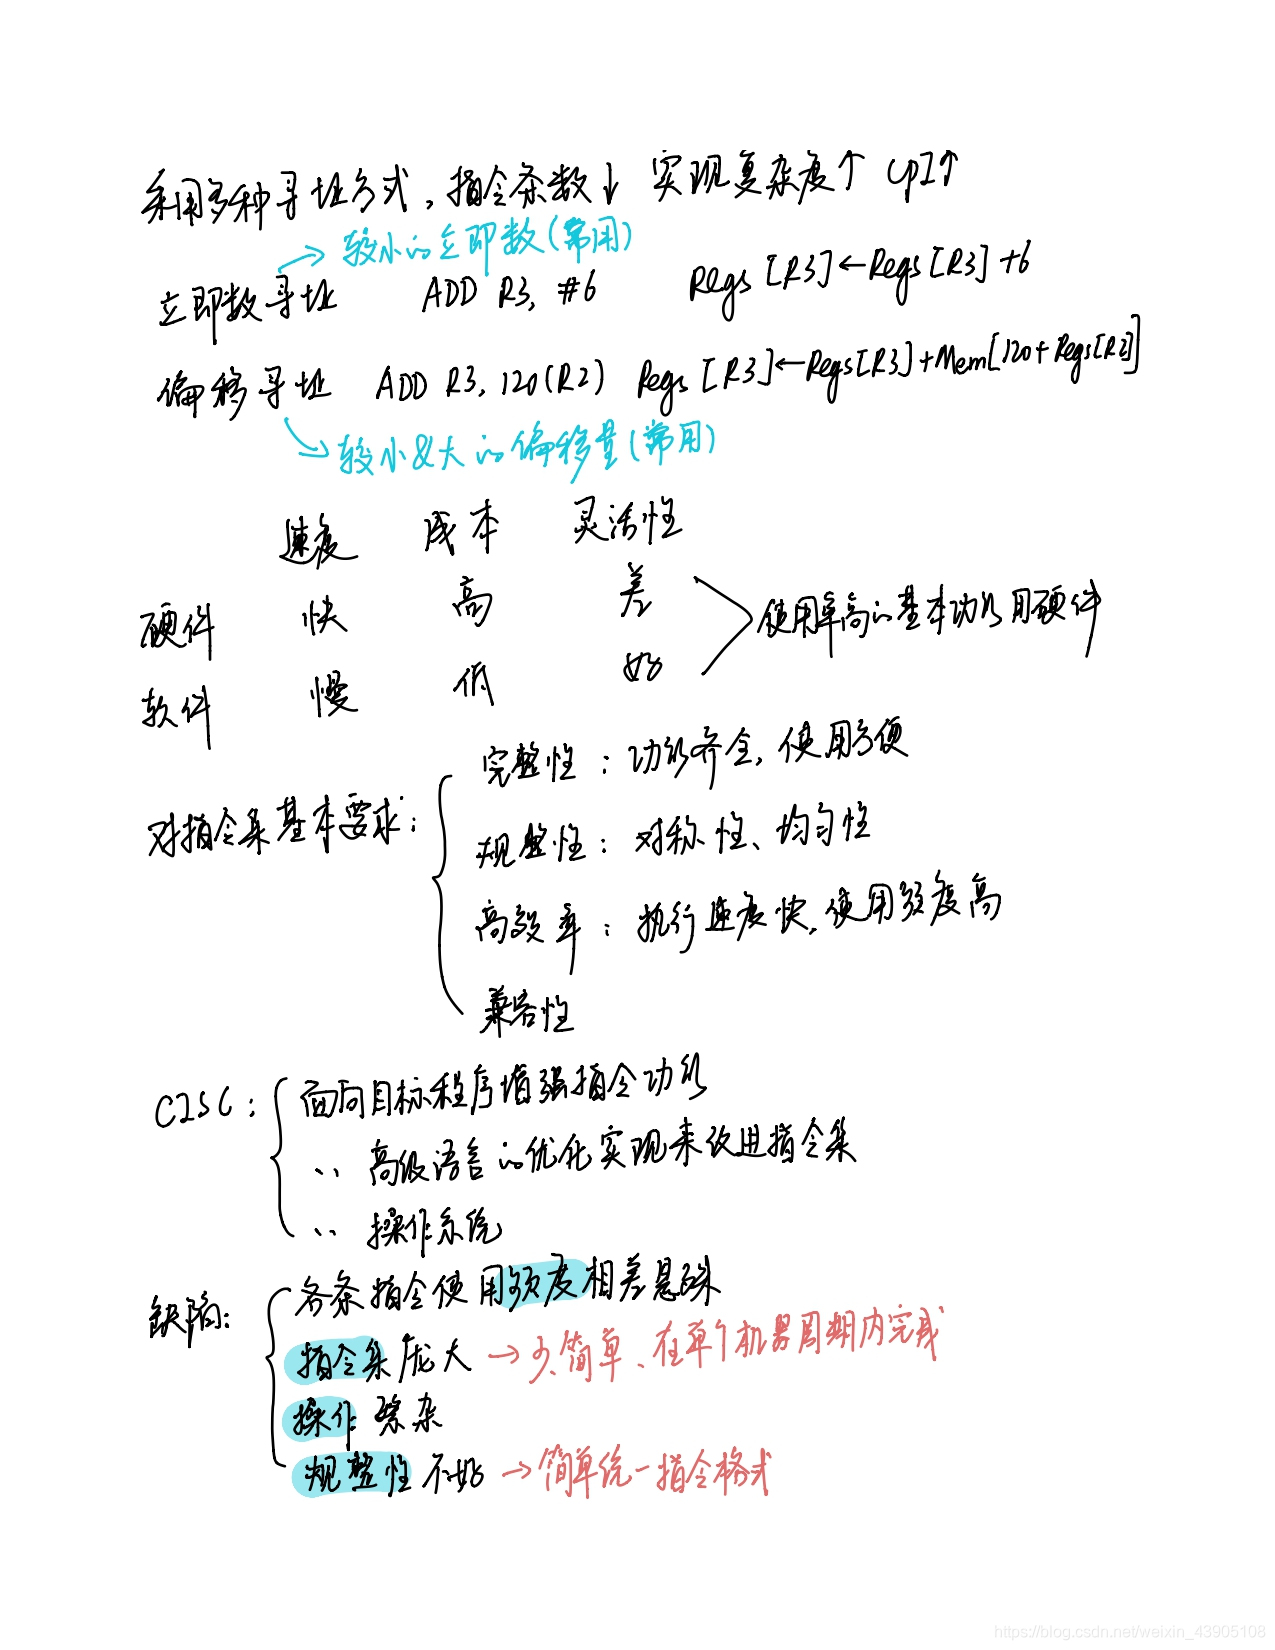 采用多种寻址方式，指令条数↓ 实现复杂度↑ CPI↑
→较小的立即数(常用)
立即数寻址 ADD R3, #6 Regs [R3]←Regs[R3]+6
偏移寻址 ADD R3, 120(R2) Regs [R3]←Regs[R3]+Mem[120+Regs[R2]]
→较小&大的偏移量(常用)
速度 成本 灵活性
硬件 快 高 差
使用率高的基本功能用硬件
软件 慢 低 好
对指令集基本要求:
完整性：功能齐全，使用方便
规整性：对称性、均匀性
高效率：执行速度快，使用频度高
兼容性
CISC：面向目标程序增强指令功能
〃 高级语言的优化实现来改进指令集
〃 操作系统
缺陷: 各条指令使用频度相差悬殊
指令集庞大 →少、简单、在单个机器周期内完成
操作繁杂
规整性不好 →简单统一指令格式
https://blog.csdn.net/weixin_43905108